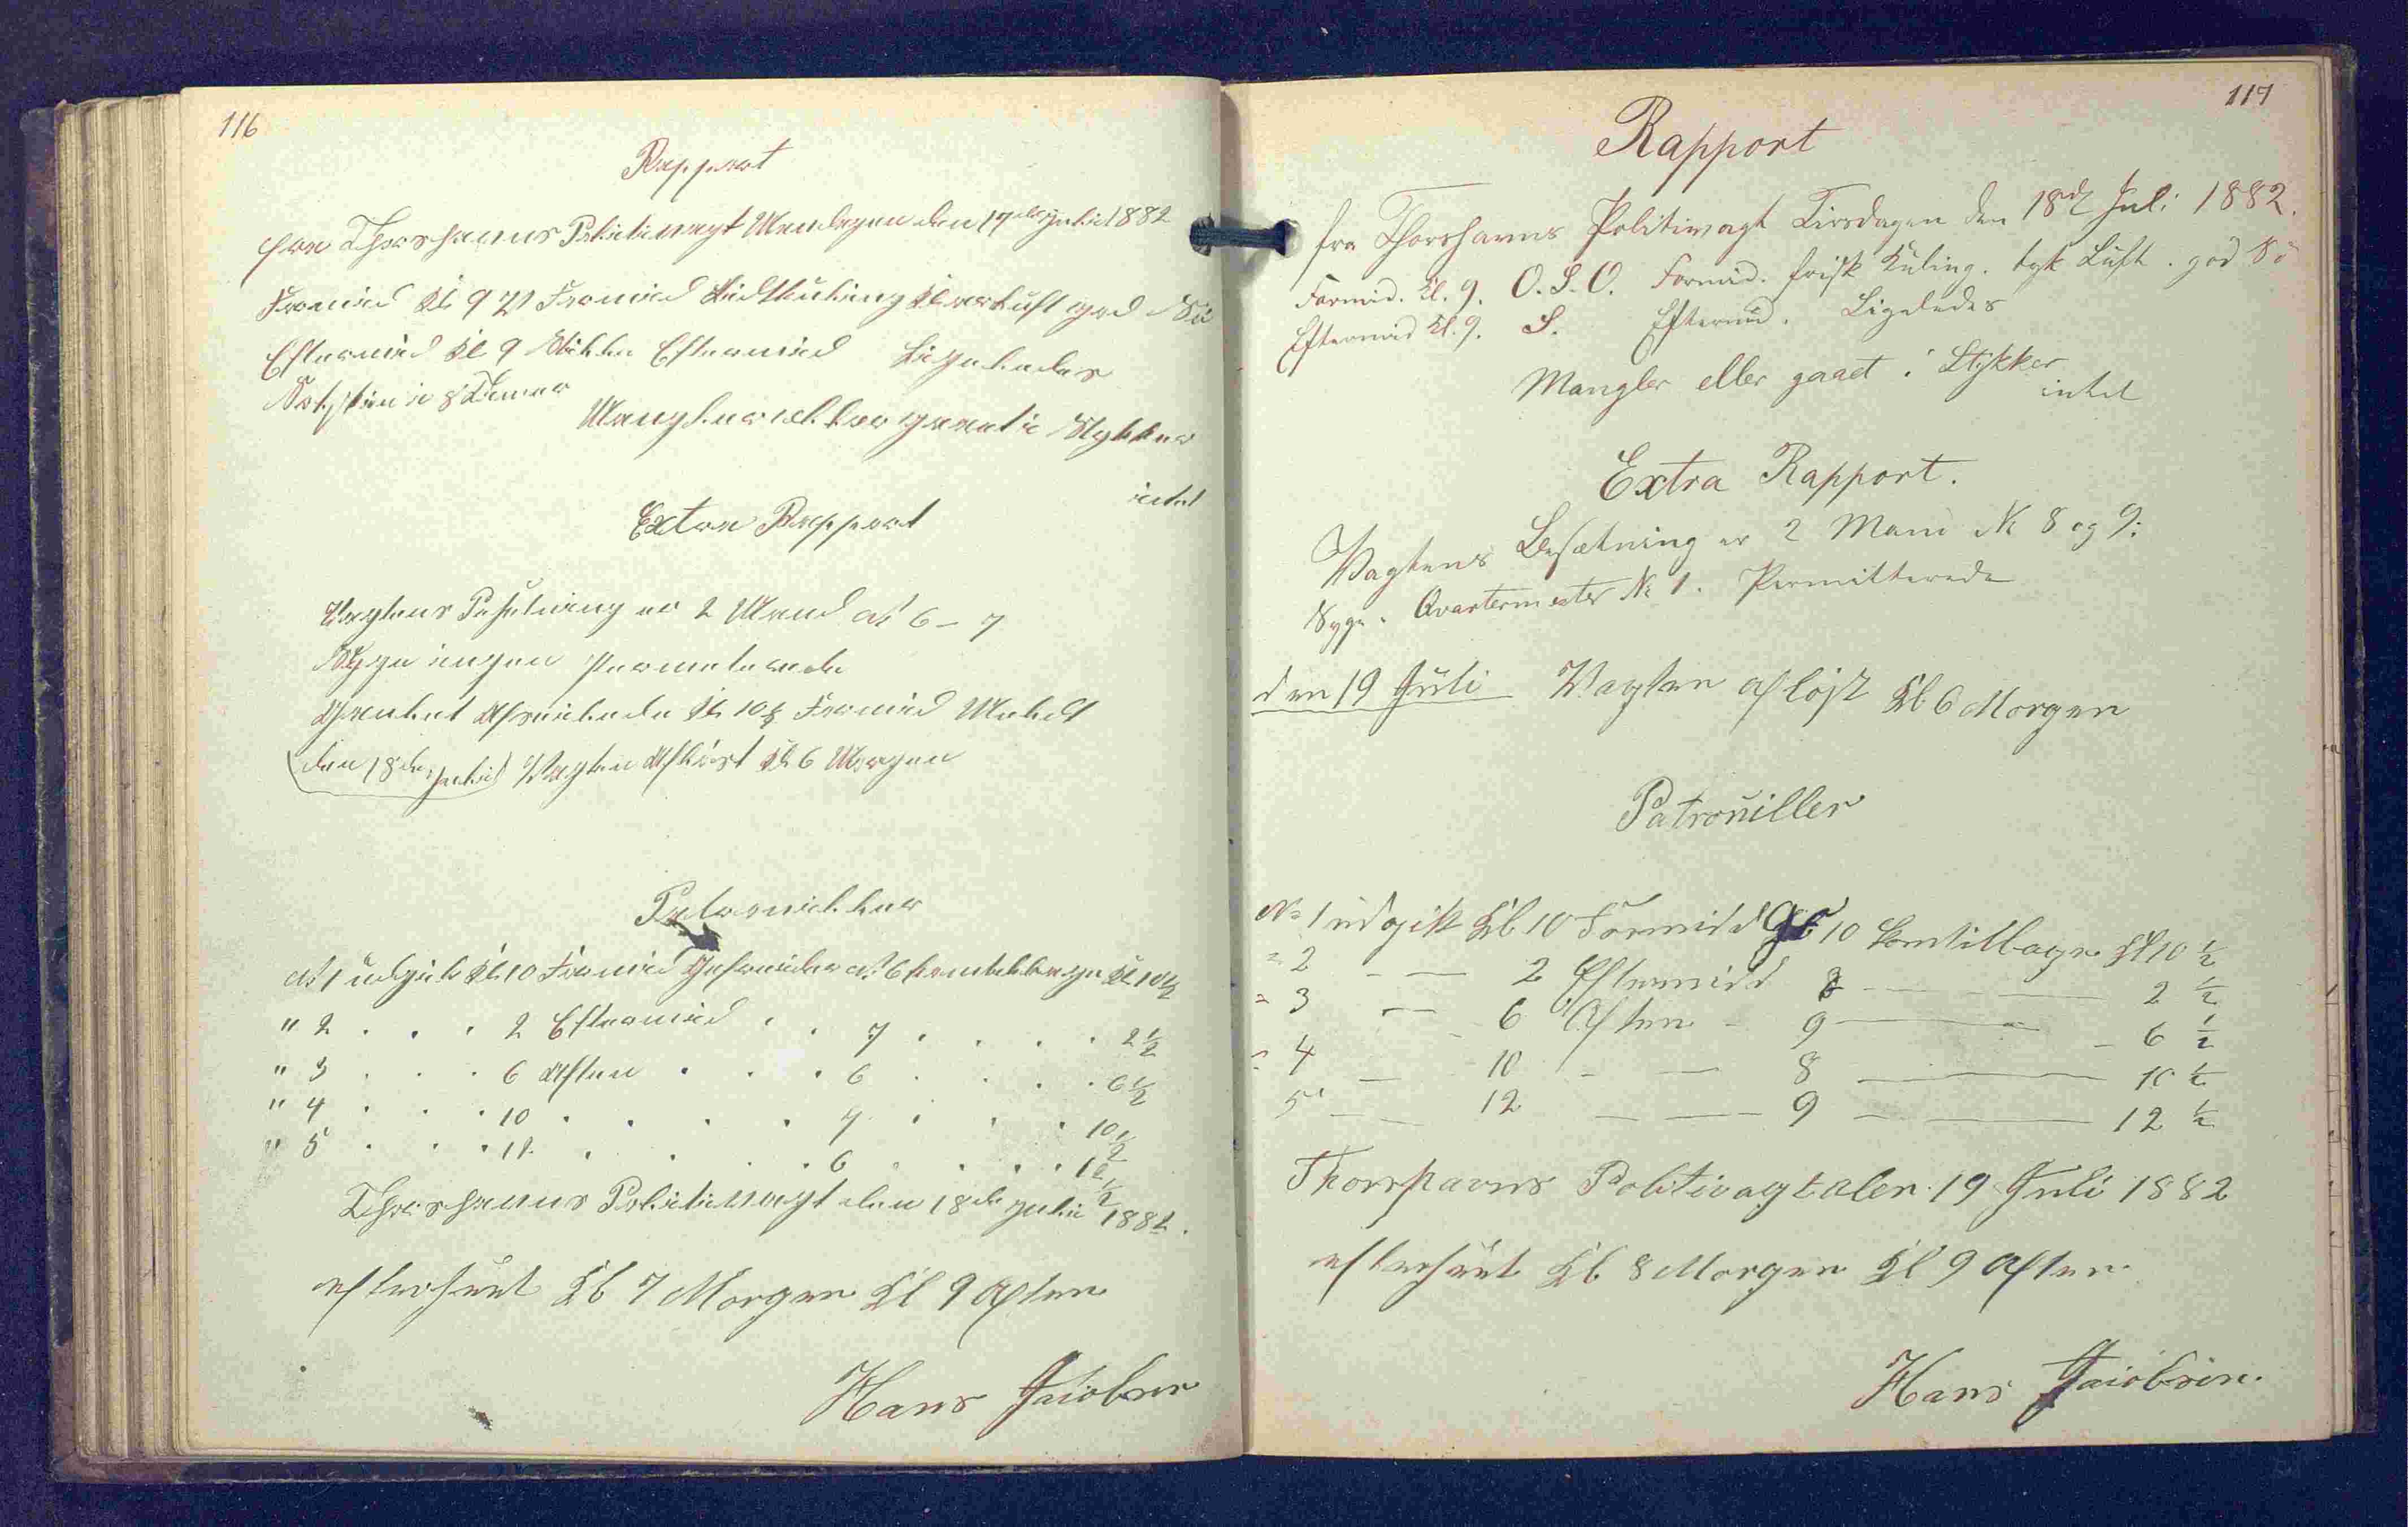 116
Rapport
fra Thorshavns Politivagt Mandagen den 17de Juli 1882
Formid Kl 9 V Formid Lidt Kuling klar Luft god Sø
Eftermid Kl 9 Stille Eftermid Ligeledes
Mangler eller gaaet i Stykker
intet
Extra Rapport
Vagtens Besetning er 2 Mand No 6 - 7
Syge ingen Permeterede
Kl 10½ Formid
den 18de Juli Vagten Afløst Kl 6 Morgen
Patrouiller
No 1 udgik Kl 10 Formid No 6 kom tilbage Kl 10½
" 2 . . . 2 Eftermid . . 7 . . . . 2½
" 3 . . . 6 Aften . . . 6 . . . . 6½
" 4 . . . 10 . . . . 7 . . . 10½
" 5 . . . 12 . . . . 6 . . . . 12½
Thorshavns Politivagt den 18de Juli 1882.
efterseet Kl 7 Morgen Kl 9 Aften
Hans Jacobsen
117
Rapport
fra Thorshavns Politivagt Tirsdagen den 18de Juli 1882.
Formid. Kl. 9. O.S.O. Formid. frisk Kuling. tyk Luft. god Sö
Eftermid Kl. 9. S. Eftermid. Ligeledes
Mangler eller gaaet i Stykker
intet
Extra Rapport.
Vagtens Besætning er 2 Mand No 8 og 9.
Syge. Qvartermester No 1. Permitterede
den 19 Juli Vagten afløst Kl 6 Morgen
Patrouiller
No 1 udgik Kl 10 Formidd 10 kom tilbage Kl 10 ½
= 2 - — 2 Eftermidd 8 — — 2 ½
= 3 — - 6 Aften - 9 — - 6 ½
= 4 — 10 - — 8 — 10 ½
5 — 12 — — 9 — 12 ½
Thorshavns Politivagt den 19 Juli 1882
efterseet Kl 8 Morgen Kl 9 Aften.
Hans Jacobsen.